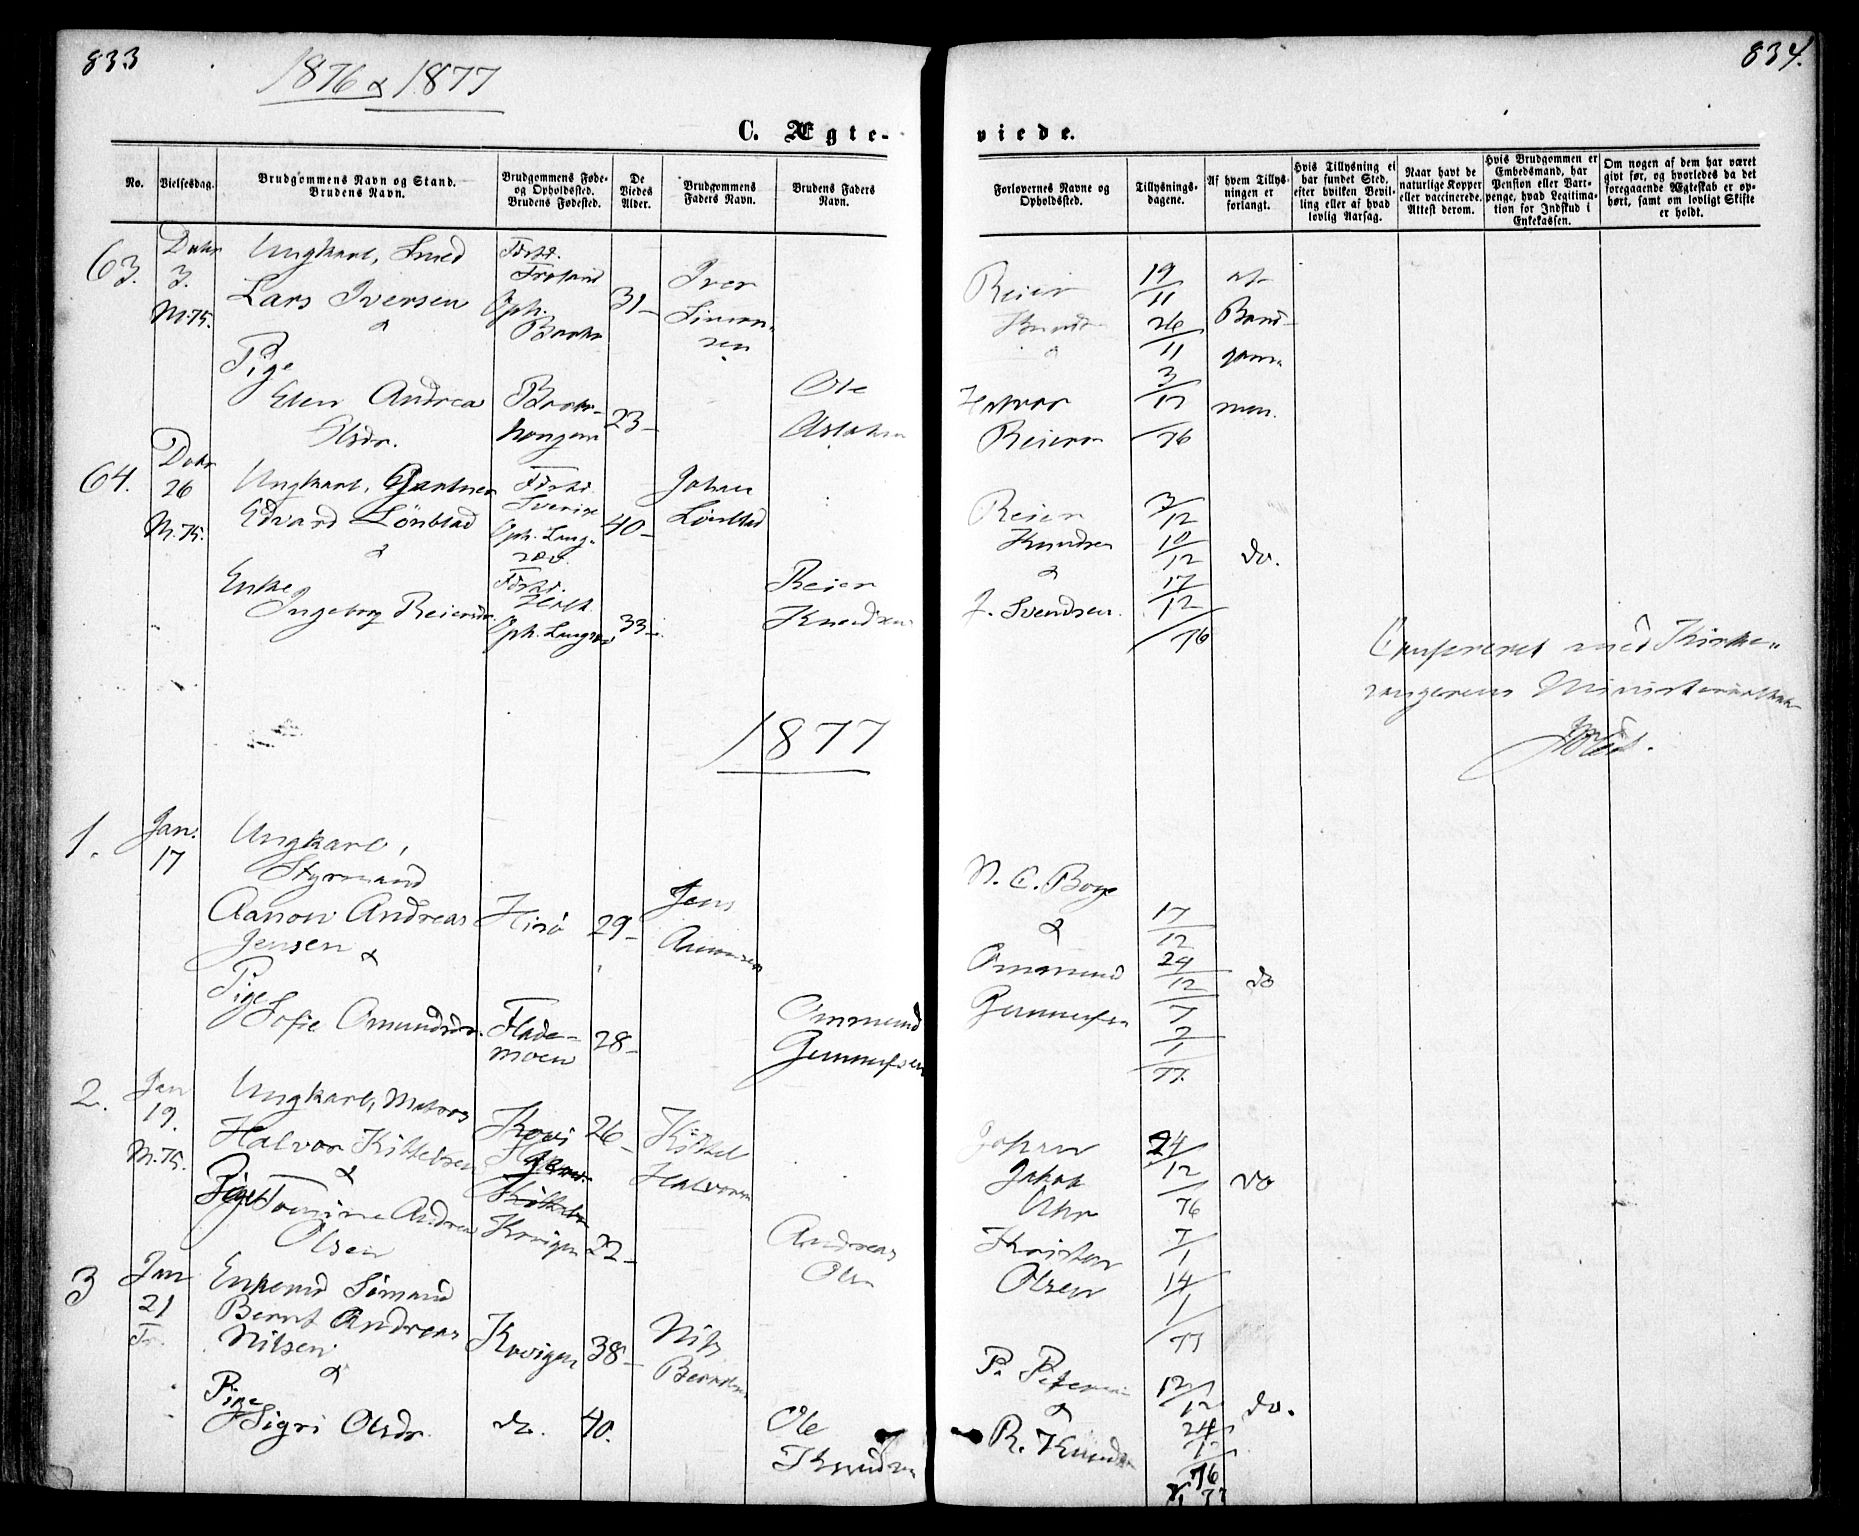 833
834.
1876 & 1877
C. Ægte-
viede.
No.
Vielsesdag.
Brudgommens Navn og Stand.
Brudens Navn.
Brudgommens Føde-
og Opholdsted.
Brudens Fødested.
De
Viedes
Alder.
Brudgommens
Faders Navn.
Brudens Faders
Navn.
Forlovernes Navne og
Opholdsted.
Tillysnings-
dagene.
Af hvem Tillys-
ningen er
forlangt.
Hvis Tillysning ei
har fundet Sted,
efter hvilken Bevil-
ling eller af hvad
lovlig Aarsag.
Naar havt de
naturlige Kopper
eller vaccinerede.
Attest derom.
Hvis Brudgommen er
Embedsmand, har
Pension eller Vart-
penge, hvad Legitima-
tion for Indskud i
Enkekassen.
Om nogen af dem har været
givt før, og hvorledes da det
foregaaende Ægteskab er op-
hørt, samt om lovligt Skifte
er holdt.
63.
3.
M. 75.
Ungkarl, Smed
Lars Iversen
&
Pige
Ellen Andrea
Olsdr.
Oph.
31-
23-
Iver
Simon-
sen
Ole
Reier
&
Halvor
Reiers
19/11
26/11
3/12
/76
af
Brud-
gom-
men.
64.
26
M. 75.
Ungkarl, Gartner
Edvard Lönblad
&
Enke
Ingeborg Reiersdr.
Sverige
Oph. Lang-
sæv.
Oph. Langsæv
40-
33-
Johan
Lönblad
Reier
Knudsen
Reier
Knudsen
&
J. Svendsen.
3/12
10/12
17/12
/76
do.
Confereret med Kirke-
sangerens Ministerialbok
1877
1.
Jan.
17
Ungkarl,
Styrmand
Aanon Andreas
Jensen &
Pige
Sofie Omundsdr.
Hisö
Flade-
moen
29-
28-
Jens
Ommund
Gunnufsen
N. C. Boye
&
Ommund
Gunnufsen
17/12
24/12
/7
2/1
/77.
do
2.
Jan
19.
M. 75.
Ungkarl, Matros
Halvor Kittelsen
&
Pige Tomine Andrea
Olsen
26-
22-
Kittel
Halvorsen
Andreas
Olsen
Johan
Jakob
Kristen
Olsen
24/12
/76
7/1
14/1
/77
do
3
Jan
21
Enkemd Sömand
Bernt Andreas
Nilsen
&
Pige
Sigri Olsdr.
Krøigen
do.
38-
40.
Nils
Berntsen
Ole
Knudsen
P. Petersen
&
R. Knudsen
12/12
24/
/76
do.